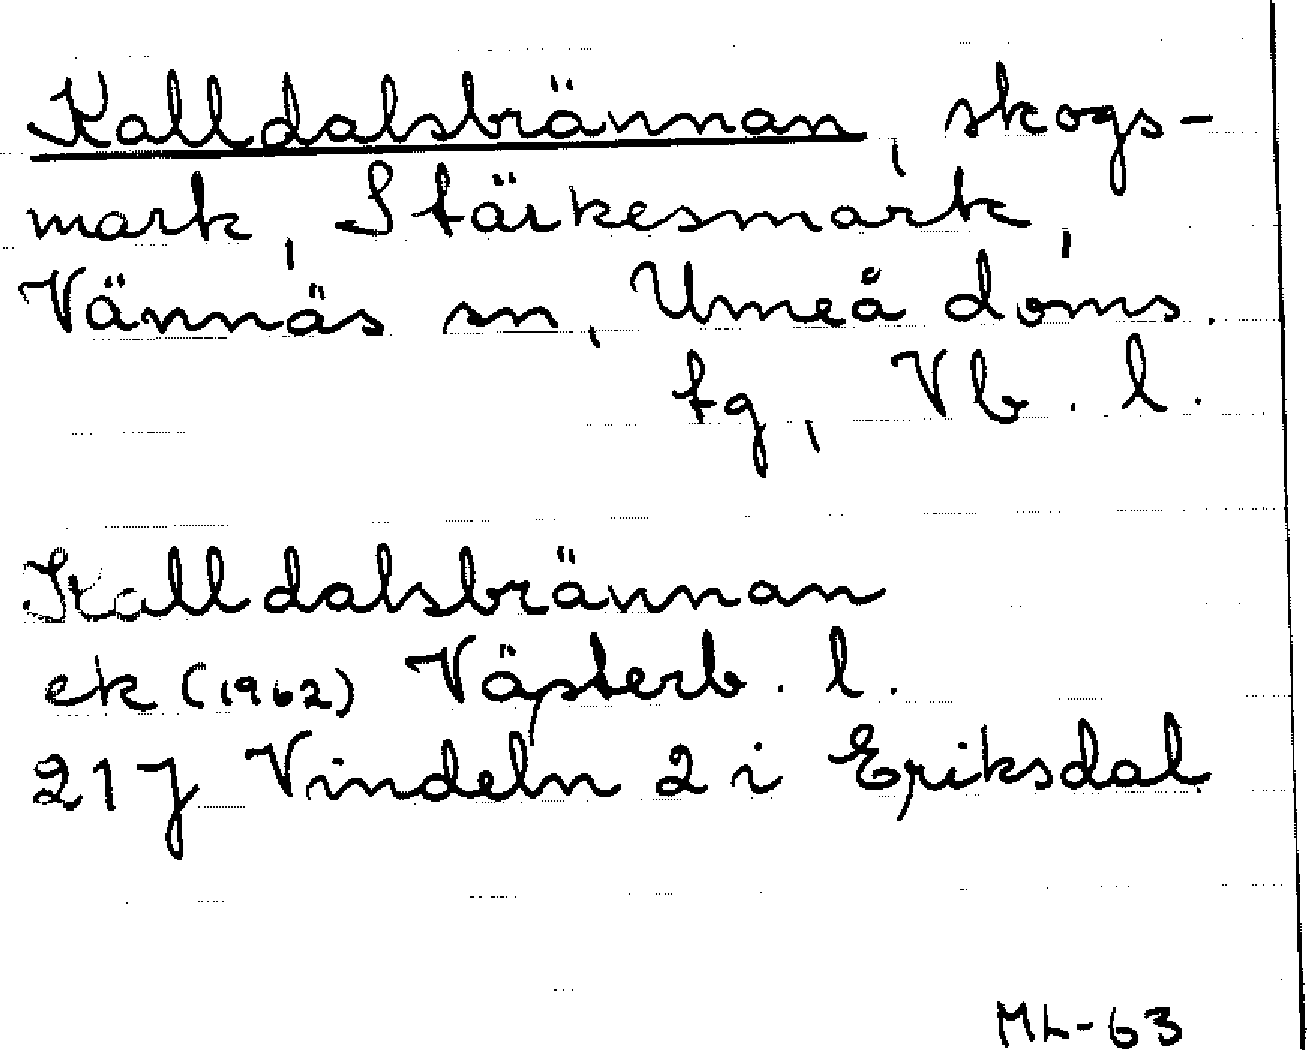 Kalldalsbrännan, skogs-
mark, Stärkesmark,
Vännäs sn, Umeå doms.
tg, Vb. l.
Kalldalsbrännan
ek (1962) Västerb. l.
21 J Vindeln 2 i Eriksdal
ML-63